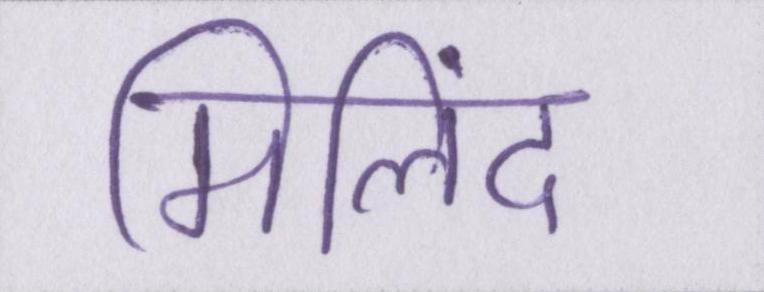 मिलिंद